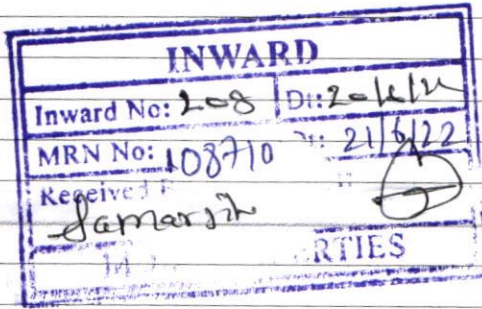 INWARD
Inward No: 208 Dt: 20/6/22
MRN No: 108710 Dt: 21/6/22
Received
Samarjit
RTIES